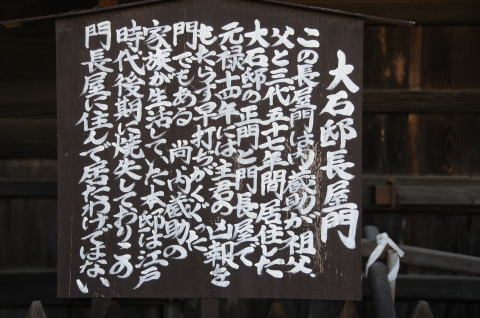 大石邸長屋門
この長屋門は内蔵助が祖父
父と三代五十七年間居住した
大石邸の正門と門長屋で
元禄十四年には主君の凶報を
もたらす早打ちがくぐった
門でもある 尚内蔵助の
家族が生活していた本邸は江戸
時代後期に焼失しておりこの
門長屋に住んで居たわけではない